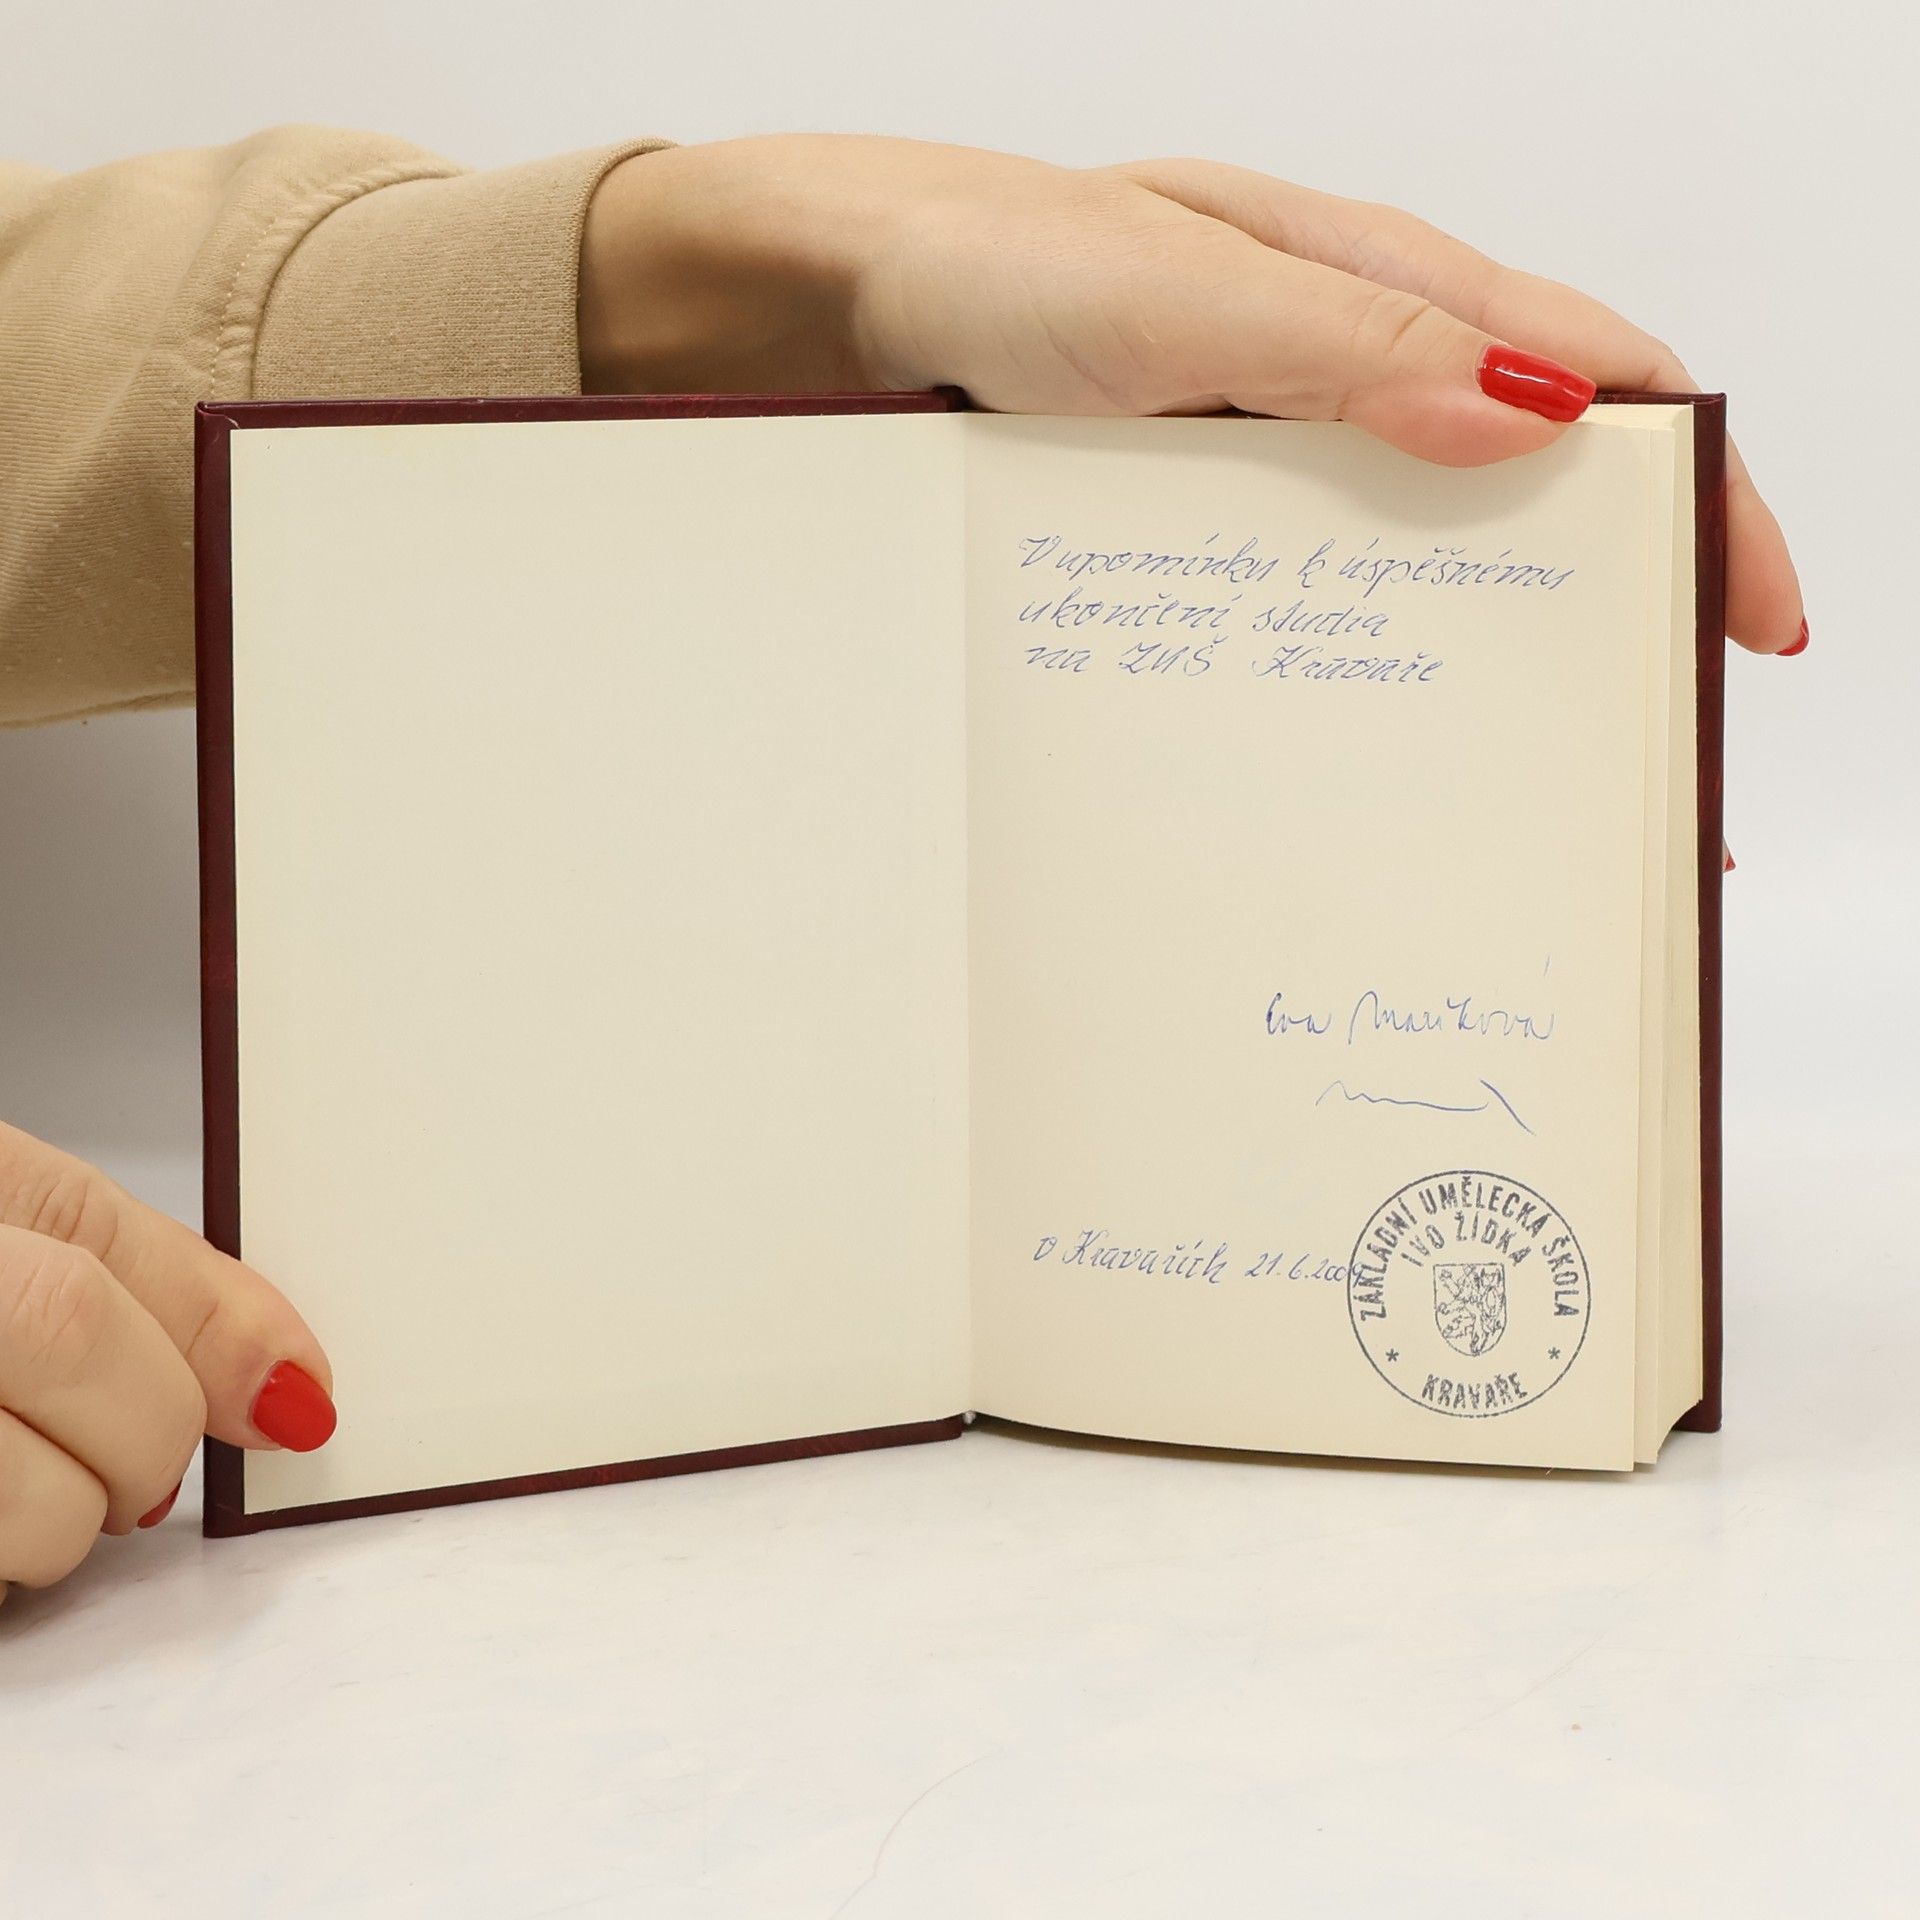 V upomínku k úspěšnému
ukončení studia
na ZUŠ Kravaře
Eva Maříková
v Kravařích 21.6.2009
ZÁKLADNÍ UMĚLECKÁ ŠKOLA
IVO ŽÍDKA
* KRAVAŘE *